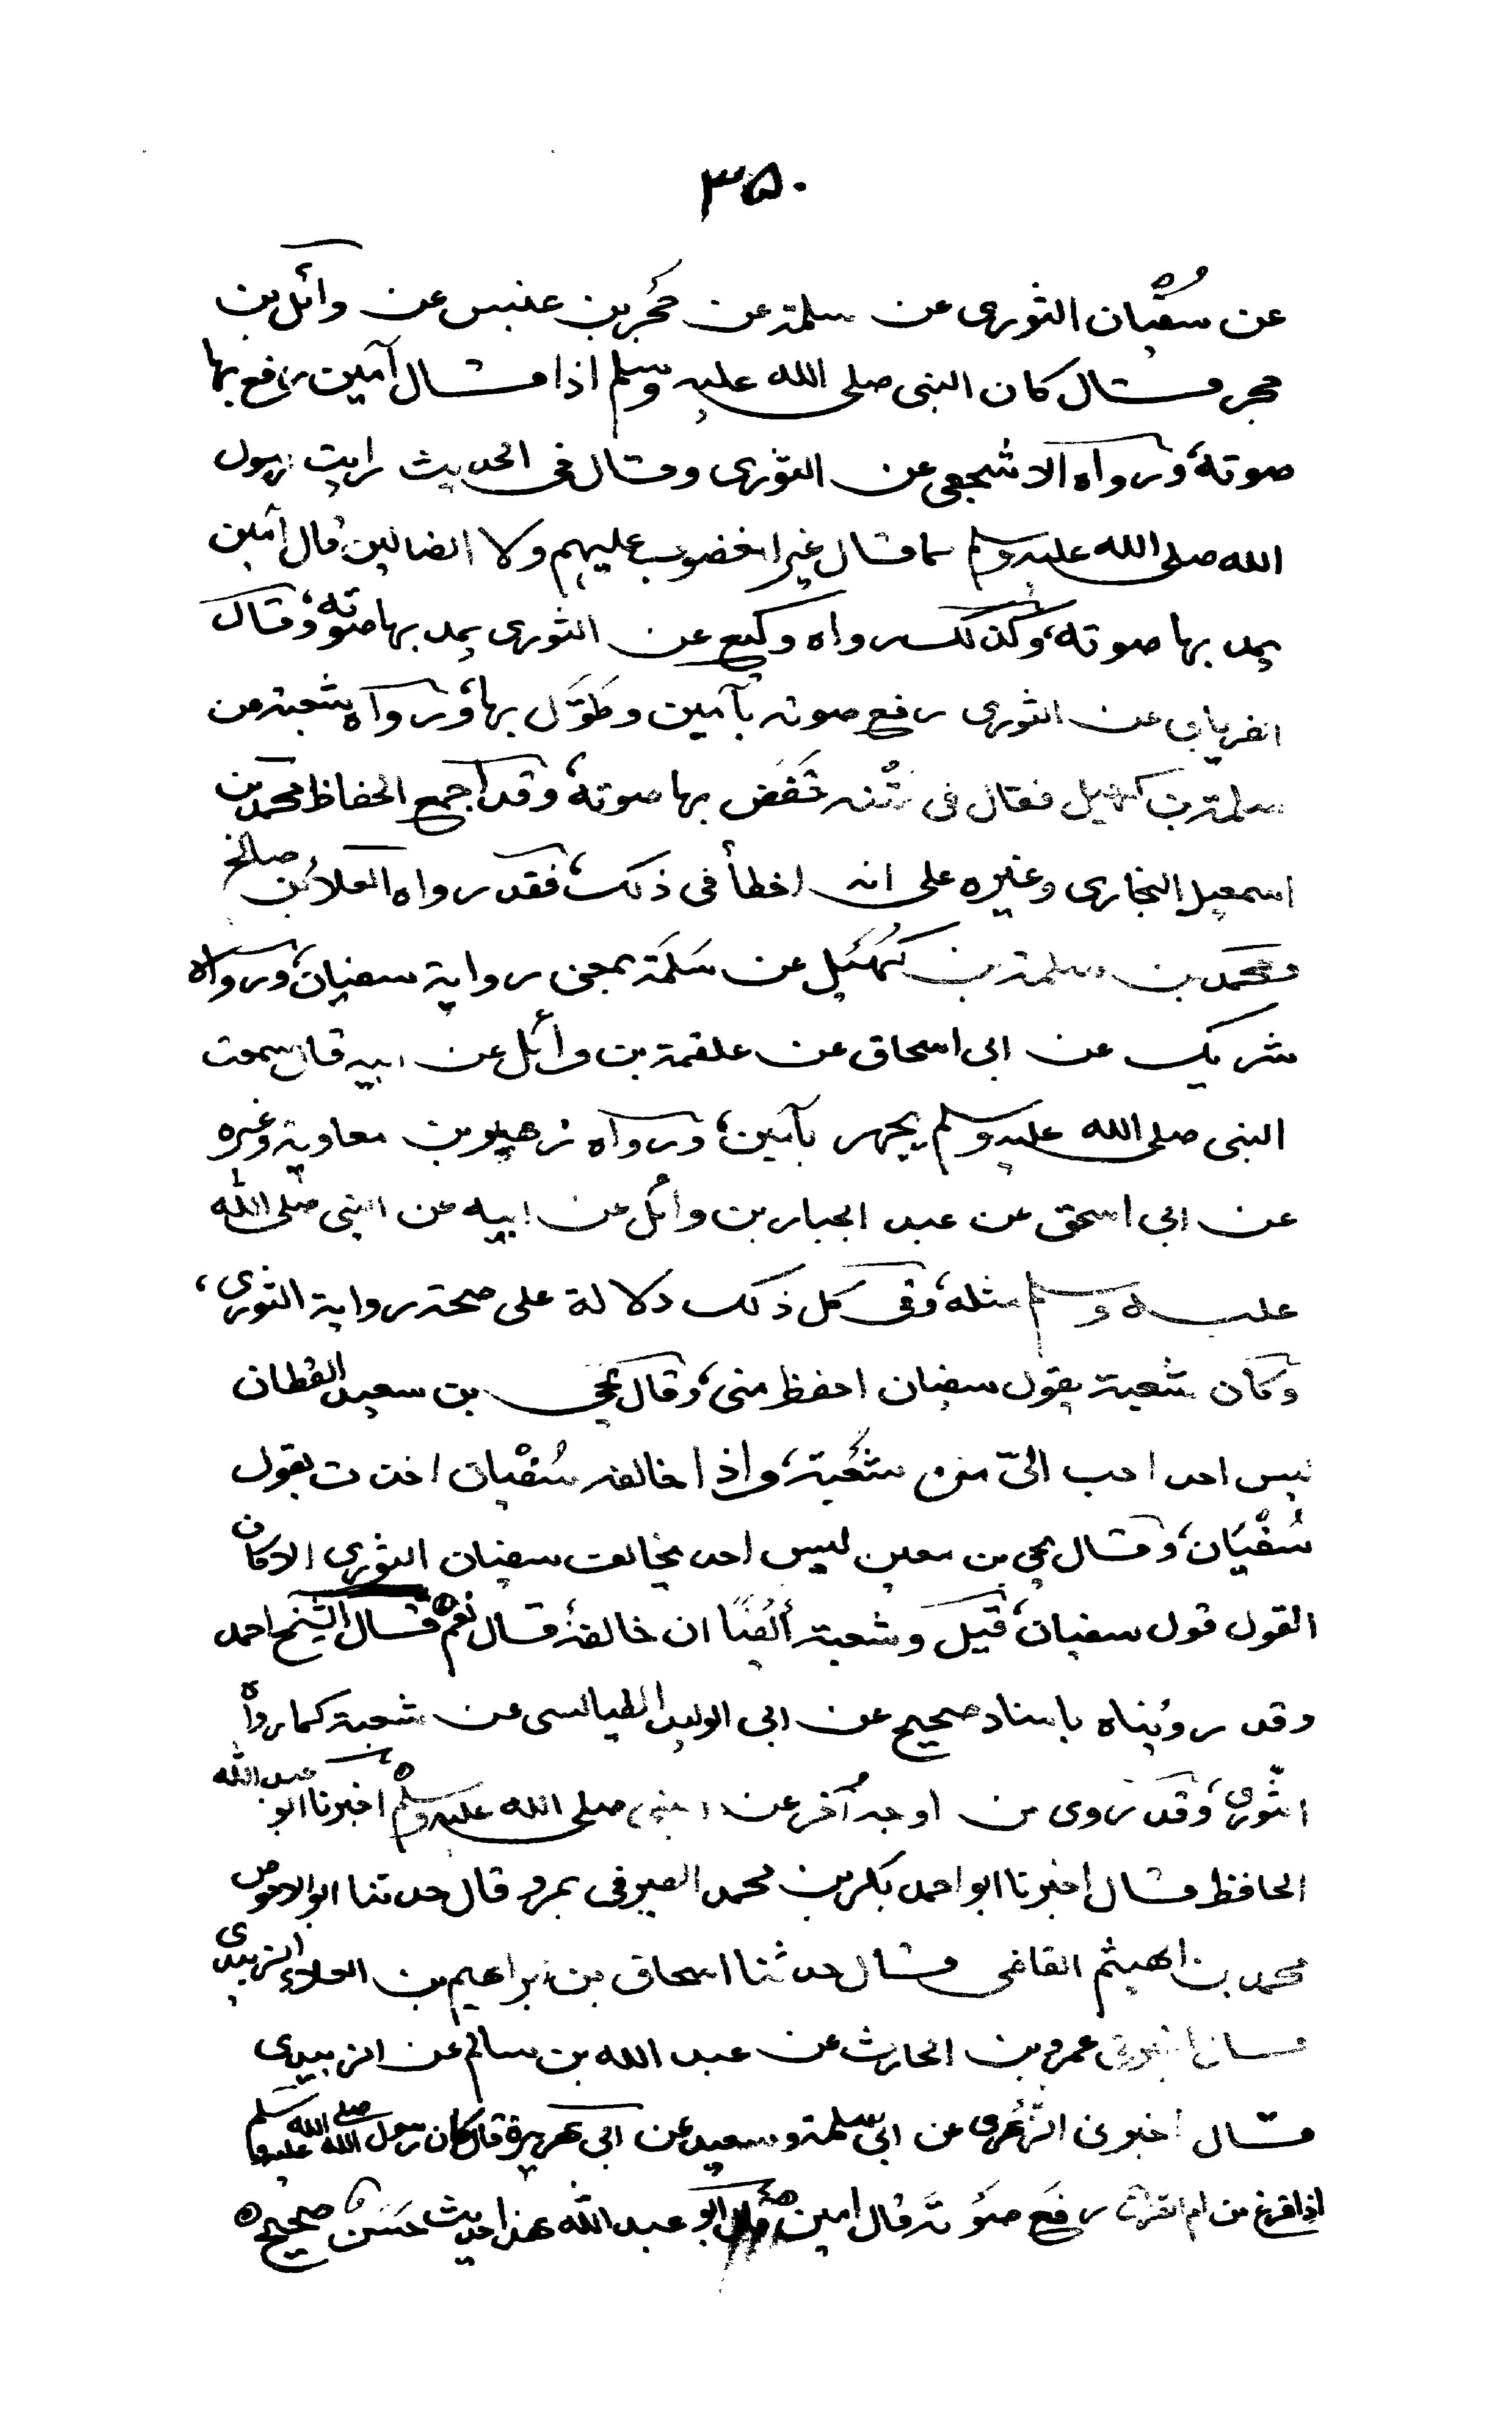 ۳۵۰
عن سفيان الثورى عن سلمة عن حُجْر بن عنبس عن وائل بن
حجر قال كان النبى صلى الله عليه وسلم اذا قال آمين رافع بها
صوته، ورواه الاشجعى عن الثورى وقال فى الحديث رايت رسول
الله صلى الله عليه وسلم لما قال غير المغضوب عليهم ولا الضالين قال آمين
يمد بها صوته، وكذلك رواه وكيع عن الثورى يمد بها صوته، وقال
الفريابى عن الثورى رافع صوته بآمين وطوّل بها، ورواه شعبة عن
سلمة بن كهيل فقال فى متنه خَفَض بها صوته، وقد اجمع الحفاظ محمد بن
اسمعيل البخارى وغيره على انه اخطأ فى ذلك، فقد رواه العلاء بن صالح
ومحمد بن سلمة بن كُهَيل عن سَلَمَة بمعنى رواية سفيان، ورواه
شريك عن ابى اسحاق عن علقمة بن وائل عن ابيه قال سمعت
النبى صلى الله عليه وسلم يجهر بآمين، ورواه زهير بن معاوية وغيره
عن ابى اسحق عن عبد الجبار بن وائل عن ابيه عن النبى صلى الله
عليه وسلم مثله، وفى كل ذلك دلالة على صحة رواية الثورى،
وكان شعبة يقول سفيان احفظ منى، وقال يحيى بن سعيد القطان
ليس احد احب الىّ من شعبة، واذا خالفه سُفْيان اخذت بقول
سُفْيَان، وقال يحيى بن معين ليس احد يخالف سفيان الثورى الا كان
القول قول سفيان، قيل وشعبة أيْضًا ان خالفه، قال نعم ه قال الشيخ احمد
وقد رويناه باسناد صحيح عن ابى الوليد الطيالسى عن شعبة كما رواه
الثّورى، وقد روى من اوجه أُخر عن النبى صلى الله عليه وسلم ه اخبرنا ابو عبد الله
الحافظ قال اخبرنا ابو احمد بكر بن محمد الصيرفى بمرو قال حدثنا ابو الاحوص
محمد بن الهيثم القاضى قال حدثنا اسحاق بن ابراهيم بن العلاء الزبيدى
قال اخبرنى عمرو بن الحارث عن عبد الله بن سالم عن الزبيدى
قال اخبرنى الزُهْرى عن ابى سلمة وسعيد عن ابى هريرة قال كان رسول الله صلى الله عليه وسلم
اذا فرغ من ام القران رفَع صَوْتَه قال امين ه قال ابو عبد الله هذا حديث حَسَن صحيح ه